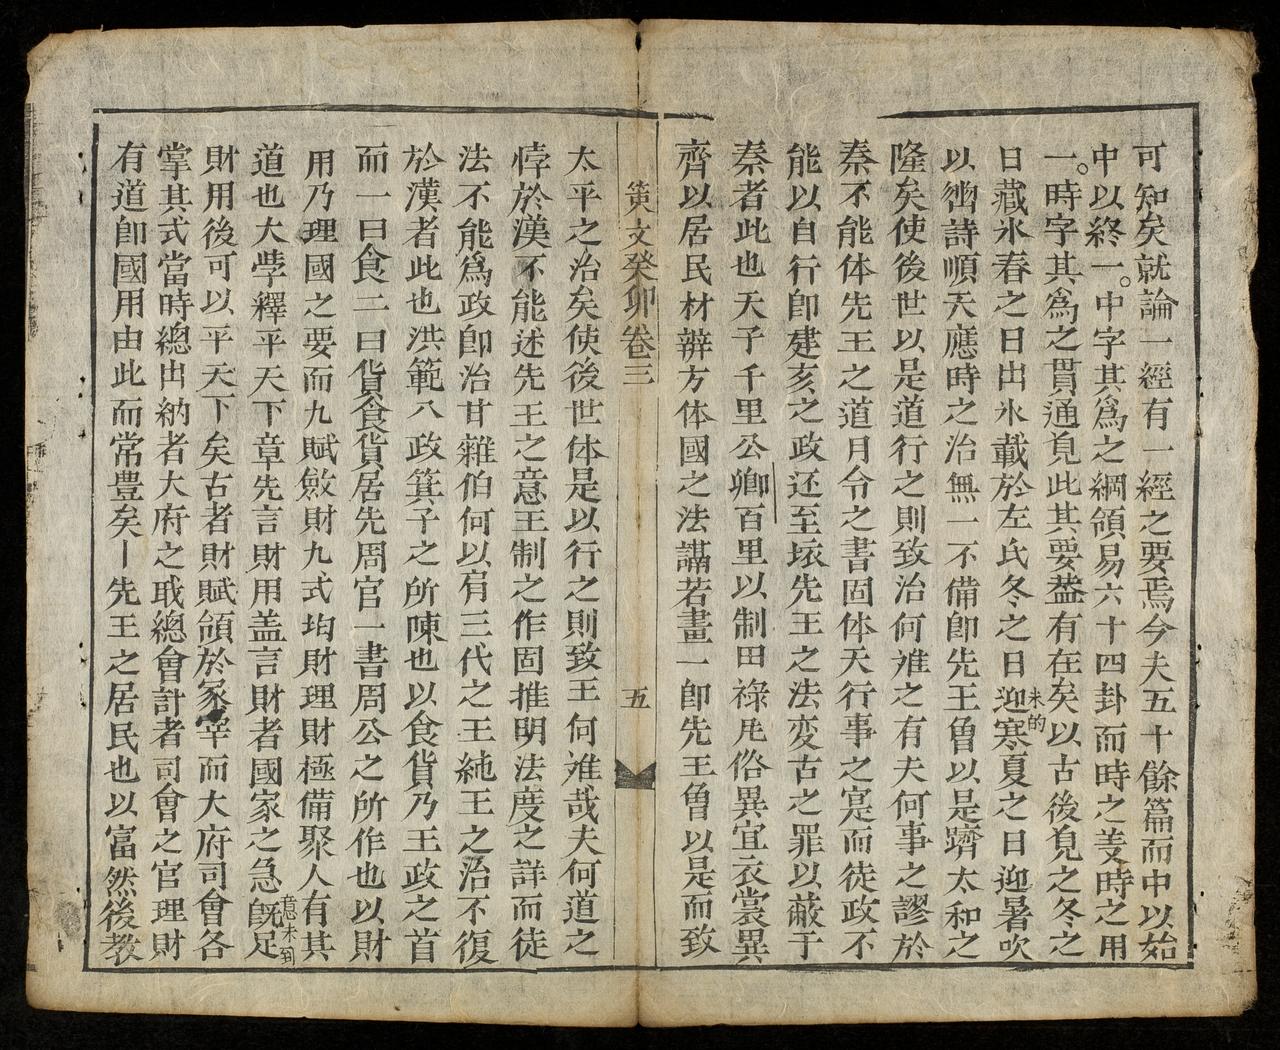 可知矣就論一經有一經之要焉今夫五十餘篇而中以始
中以終一。中字其為之綱領易六十四卦而時之義時之用
一。時字其為之貫通見此其要盖有在矣以古後見之冬之
日藏氷春之日出氷載於左氏冬之日迎寒夏之日迎暑吹
未的
以豳詩順天應時之治無一不備即先王會以是躋太和之
隆矣使後世以是道行之則致治何难之有夫何事之謬於
秦不能体先王之道月令之書固体天行事之寔而徒政不
能以自行即建亥之政还至垓先王之法変古之罪以蔽于
秦者此也天子千里公卿百里以制田祿民俗異宜衣裳異
齊以居民材辨方体國之法講若畫一即先王會以是而致
策文癸卯卷三
五
太平之治矣使後世体是以行之則致王何难哉夫何道之
悖於漢不能述先王之意王制之作固推明法度之詳而徒
法不能為政即治甘雜伯何以肩三代之王純王之治不復
於漢者此也洪範八政箕子之所陳也以食貨乃王政之首
而一曰食二曰貨食貨居先周官一書周公之所作也以財
用乃理國之要而九賦斂財九式均財理財極備聚人有其
道也大斈釋平天下章先言財用盖言財者國家之急既足
意未到
財用後可以平天下矣古者財賦領於冢宰而大府司會各
掌其式當時總出納者大府之職總會計者司會之官理財
有道即國用由此而常豊矣｜先王之居民也以富然後教